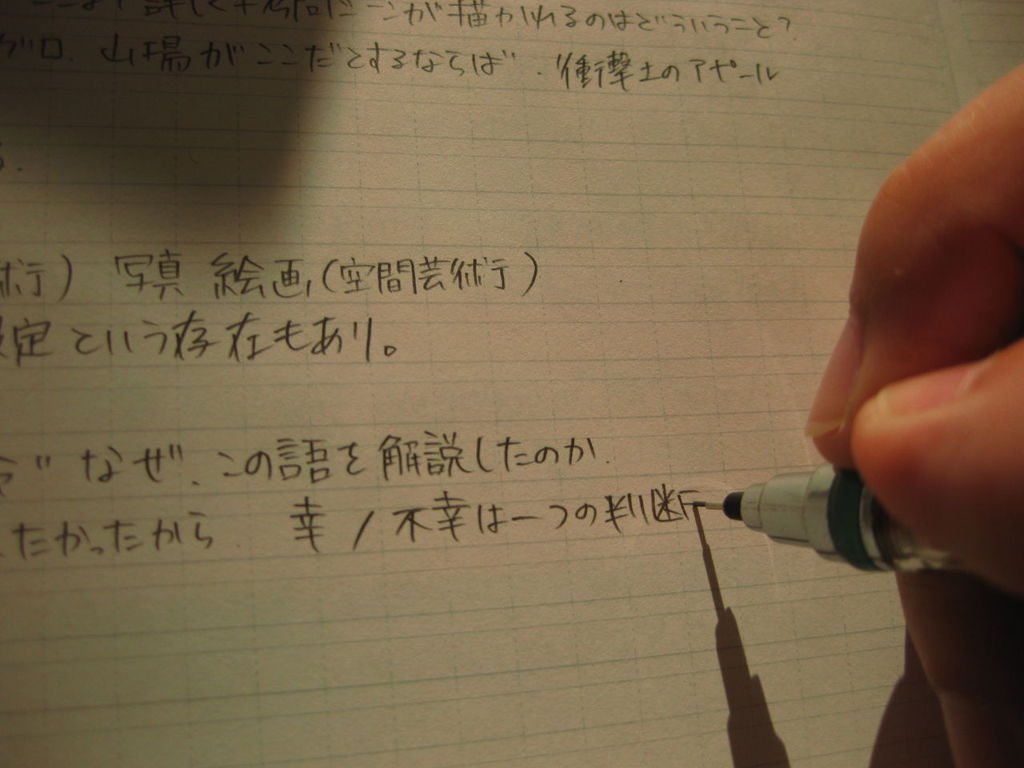 が描かれるのはどういうこと?
山場がここだとするならば 、衝撃土のアピール
術) 写真 絵画(空間芸術)
定という存在もあり。
"なぜ"、この語を解説したのか
たかったから 幸/不幸は一つの判断